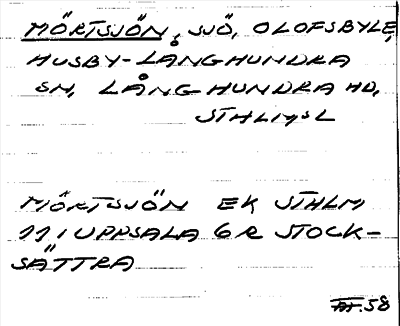 MÖRTSJÖN, SJÖ, OLOFSBYLE,
HUSBY-LÅNGHUNDRA
SN, LÅNGHUNDRA HD,
STHLMS L
MÖRTSJÖN EK STHLM
111 UPPSALA 6 R STOCK-
SÄTTRA
58